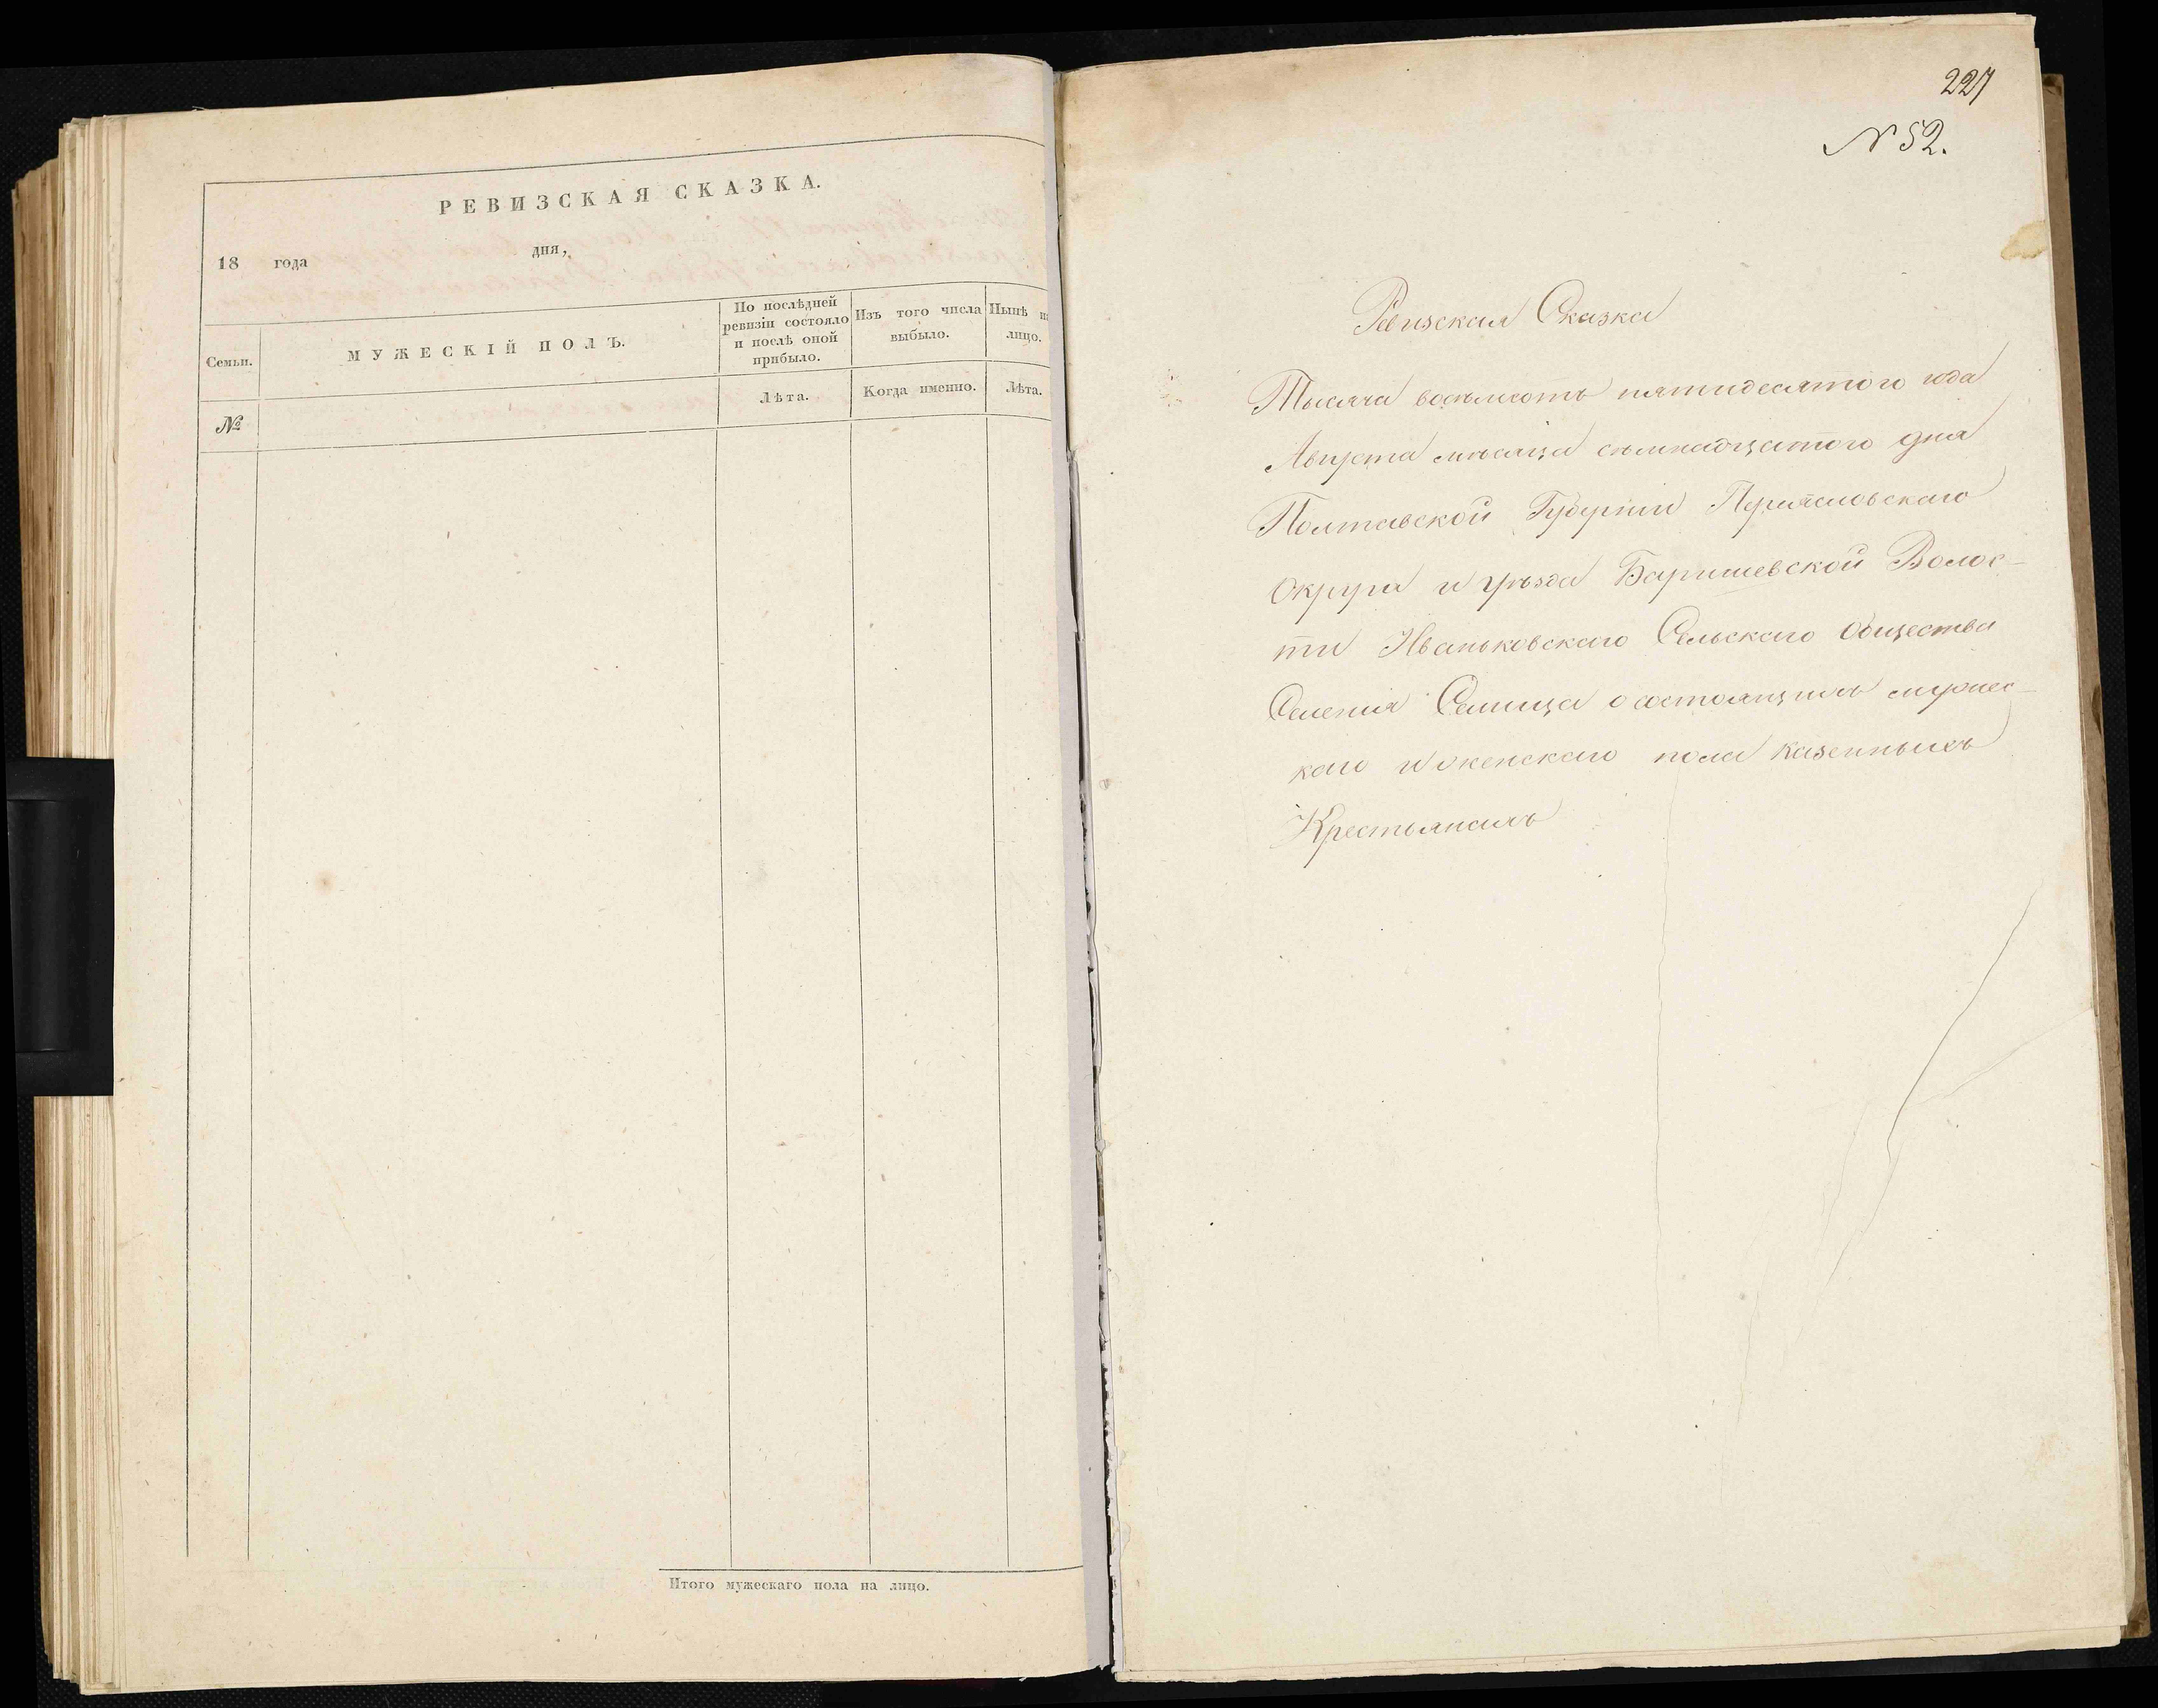 РЕВИЗСКАЯ СКАЗКА.
18 года дня,
Семьи.
МУЖЕСКІЙ ПОЛЪ.
По послѣдней
ревизіи состояло
и послѣ оной
прибыло.
Изъ того числа
выбыло.
Нынѣ на
лицо.
№
Лѣта.
Когда именно.
Лѣта.
Итого мужескаго пола на лицо.
227
N 52.
Ревизская Сказка
Тысяча восѣмсотъ пятидесятого года
Августа мѣсяца сѣмнадцатого дня
Полтавской Губерніи Переяславскаго
Округа и уѣзда Баришевской Волос-
ти Иваньковскаго Сельскаго Общества
Селенія Селища о состоящихъ мужес-
каго и женскаго пола казенныхъ
Крестьянахъ